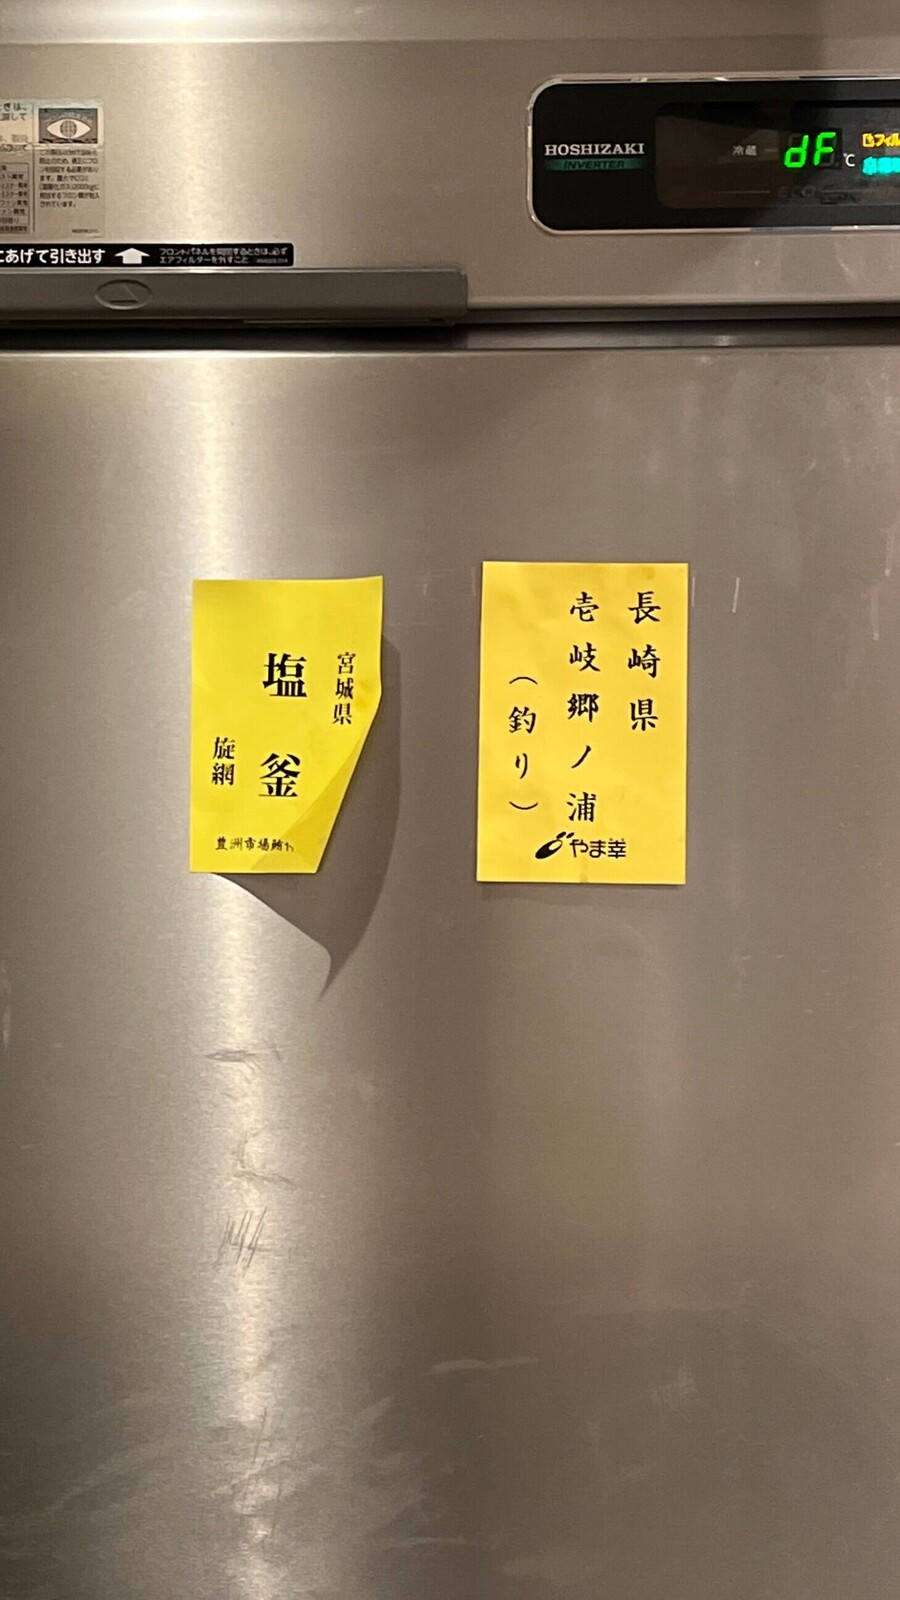 HOSHIZAKI
INVERTER
冷蔵
dF
℃
ECO
にあげて引き出す
フロントパネルを開閉するときは、必ず
エアフィルターを外すこと
宮城県
塩釜
旋網
豊洲市場鮪
長崎県
壱岐郷ノ浦
（釣り）
やま幸